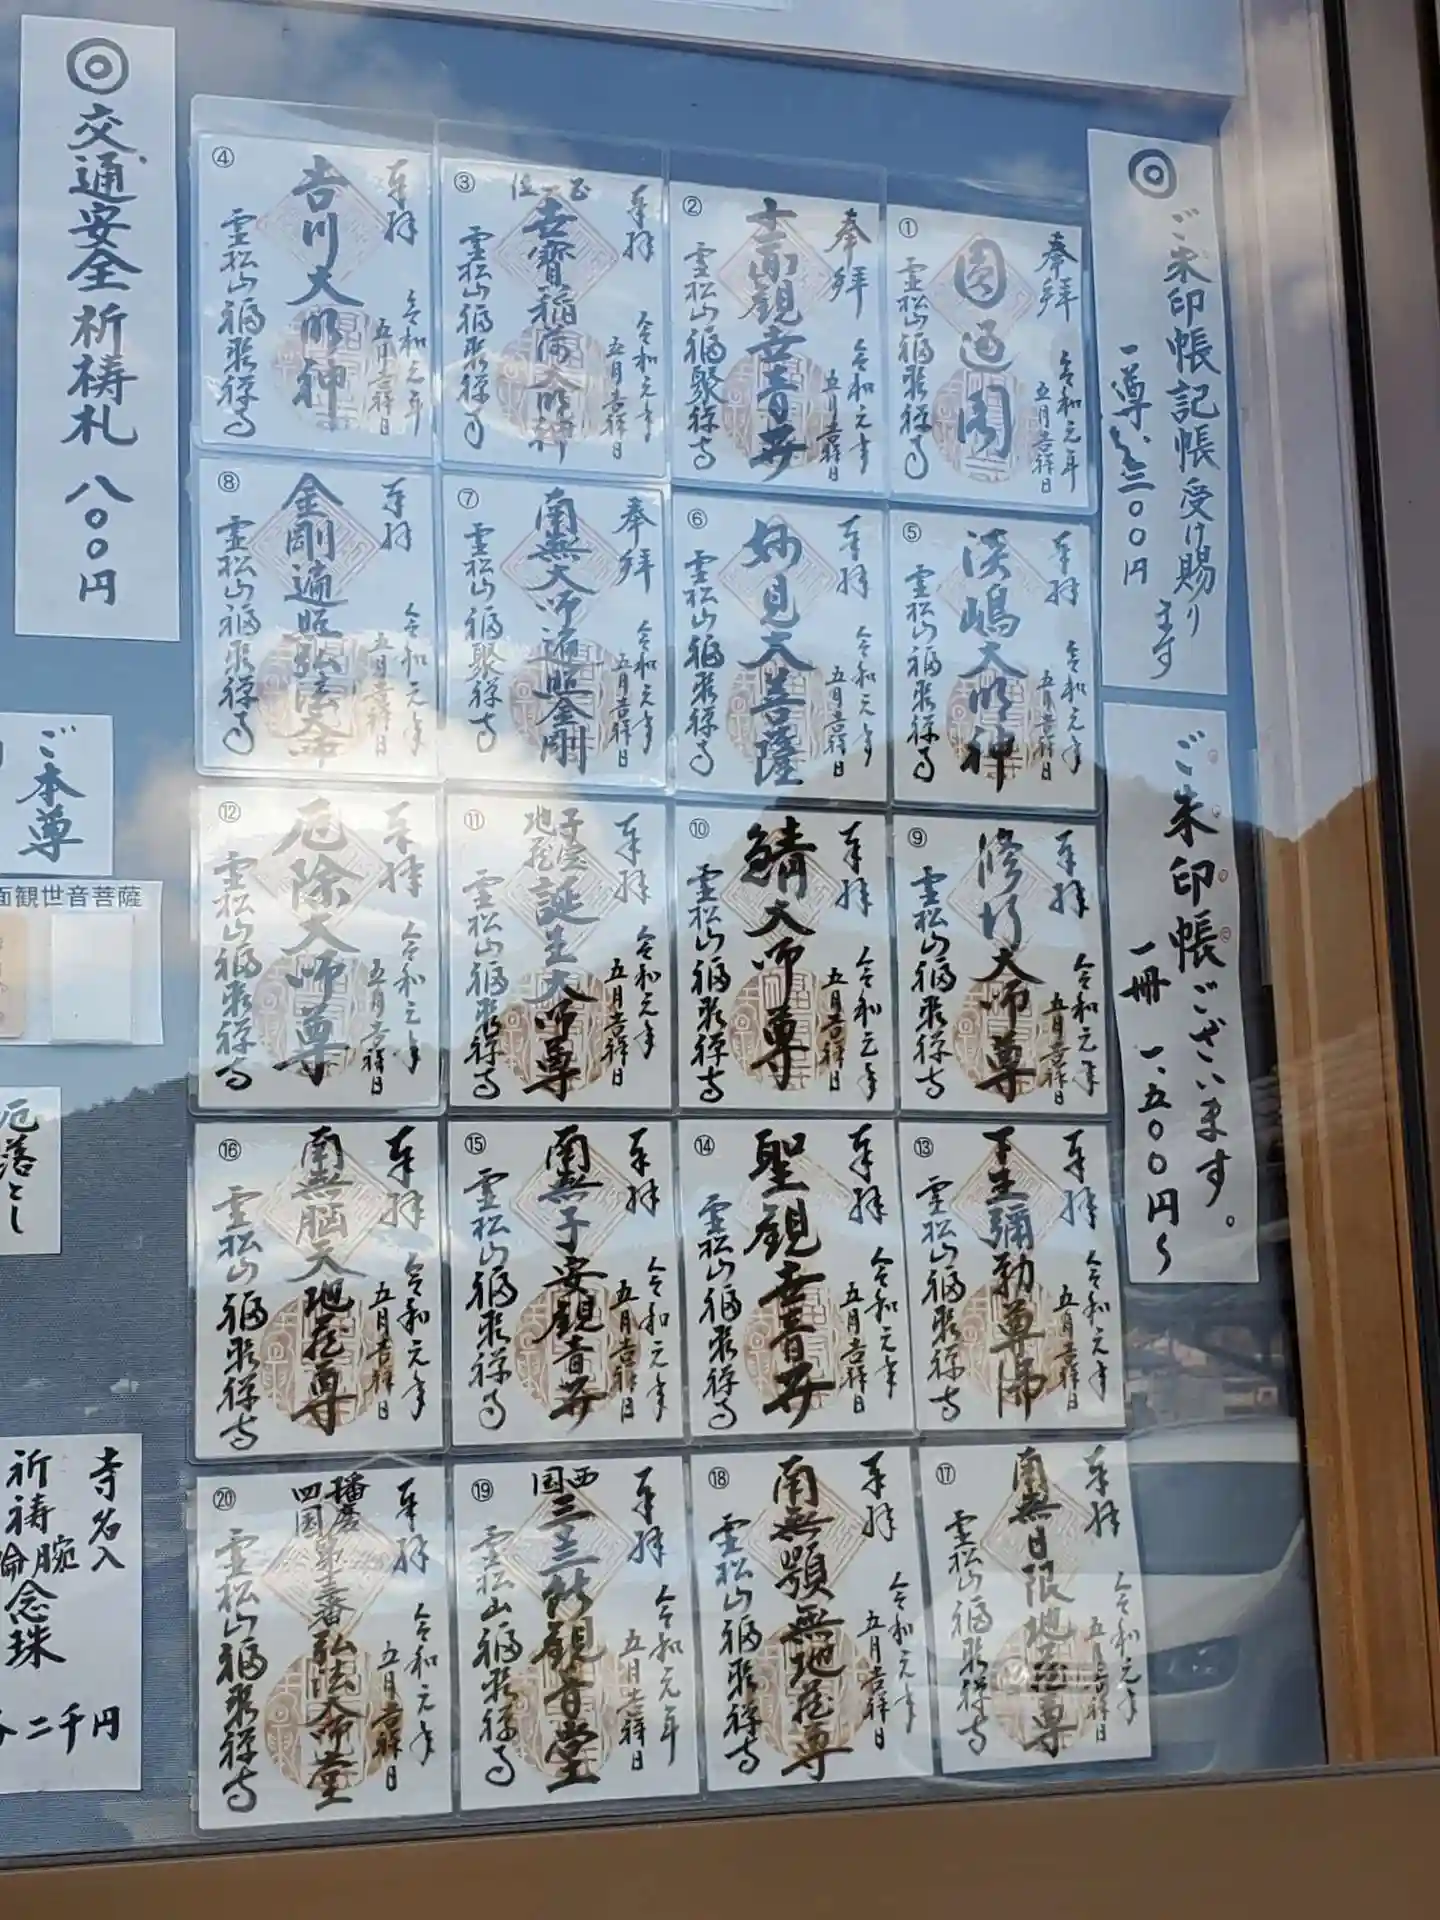 ◎ご朱印帳記帳受け賜り
ます
一尊 三〇〇円
ご朱印帳ございます。
一冊 一、五〇〇円〜
①
奉拝
令和元年
五月吉祥日
圓通閣
霊松山福聚禅寺
②
奉拝
令和元年
五月吉祥日
十一面観世音菩薩
霊松山福聚禅寺
③
奉拝
令和元年
五月吉祥日
正一位
吉寶稲荷大明神
霊松山福聚禅寺
④
奉拝
令和元年
五月吉祥日
吉川大明神
霊松山福聚禅寺
⑤
奉拝
令和元年
五月吉祥日
淡嶋大明神
霊松山福聚禅寺
⑥
奉拝
令和元年
五月吉祥日
妙見大菩薩
霊松山福聚禅寺
⑦
奉拝
令和元年
五月吉祥日
南無大師遍照金剛
霊松山福聚禅寺
⑧
奉拝
令和元年
五月吉祥日
金剛遍照弘法大師
霊松山福聚禅寺
⑨
奉拝
令和元年
五月吉祥日
修行大師尊
霊松山福聚禅寺
⑩
奉拝
令和元年
五月吉祥日
鯖大師尊
霊松山福聚禅寺
⑪
奉拝
令和元年
五月吉祥日
子安
地蔵
誕生大師尊
霊松山福聚禅寺
⑫
奉拝
令和元年
五月吉祥日
厄除大師尊
霊松山福聚禅寺
⑬
奉拝
令和元年
五月吉祥日
下生彌勒尊佛
霊松山福聚禅寺
⑭
奉拝
令和元年
五月吉祥日
聖観世音菩薩
霊松山福聚禅寺
⑮
奉拝
令和元年
五月吉祥日
南無子安観音菩薩
霊松山福聚禅寺
⑯
奉拝
令和元年
五月吉祥日
南無脳天地蔵尊
霊松山福聚禅寺
⑰
奉拝
令和元年
五月吉祥日
南無日限地蔵尊
霊松山福聚禅寺
⑱
奉拝
令和元年
五月吉祥日
南無顎無地蔵尊
霊松山福聚禅寺
⑲
奉拝
令和元年
五月吉祥日
西国
三十三観音堂
霊松山福聚禅寺
⑳
奉拝
令和元年
五月吉祥日
播磨
四国
弘法大師堂
霊松山福聚禅寺
◎交通安全祈祷札 八〇〇円
ご本尊
面観世音菩薩
厄落とし
寺名入
祈祷腕
念珠
二千円